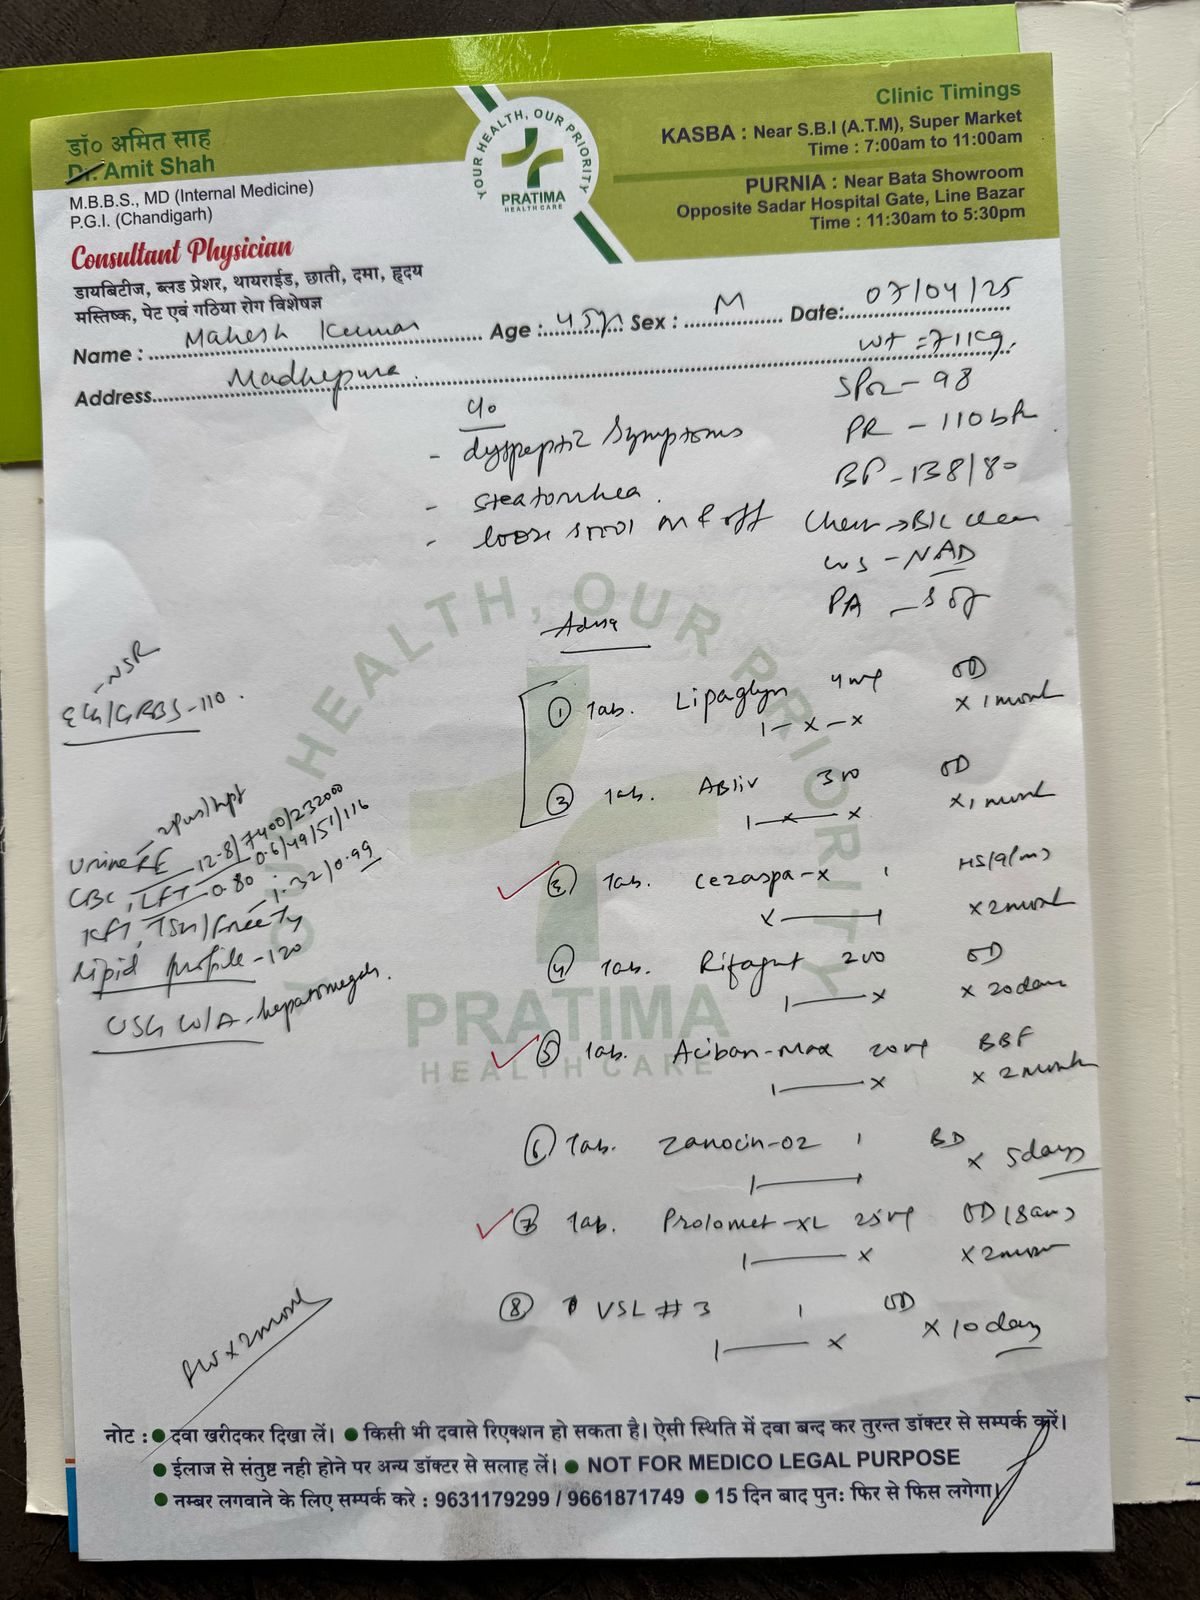 डॉ० अमित साह
Dr. Amit Shah
M.B.B.S., MD (Internal Medicine)
P.G.I. (Chandigarh)
Consultant Physician
डायबिटीज, ब्लड प्रेशर, थायराईड, छाती, दमा, हृदय
मस्तिष्क, पेट एवं गठिया रोग विशेषज्ञ
YOUR HEALTH, OUR PRIORITY
PRATIMA
HEALTH CARE
Clinic Timings
KASBA : Near S.B.I (A.T.M), Super Market
Time : 7:00am to 11:00am
PURNIA : Near Bata Showroom
Opposite Sadar Hospital Gate, Line Bazar
Time : 11:30am to 5:30pm
Name : Mahesh Kumar Age : 45yr Sex : M Date: 07/04/25
Address Madhepura
wt = 71kg.
SPO2 - 98
PR - 110
BP - 138/80
Chest -> B/L clear
CVS - NAD
PA - soft
C/o
- dyspeptic symptoms
- steatorrhea.
- loose stool on & off
Advise
- NSR
ECG/GRBS - 110.
Urine RE
CBC, LFT - 0.80
12.8/7400/232000
0.6/49/51/116
KFT, TSH/Free T4
1.32/0.99
Lipid profile - 120
USG W/A - hepatomegaly.
① Tab. Lipaglyn 4mg OD
1 - x - x x 1 month
② Tab. ABliv 300 OD
x 1 month
③ Tab. Cezaspa-x 1 HS (9pm)
x 2 month
④ Tab. Rifagut 200 OD
x 20 days
⑤ Tab. Aciban-Max 20mg BBF
x 2 month
⑥ Tab. Zanocin-OZ 1 BD
x 5 days
⑦ Tab. Prolomet-XL 25mg OD (8am)
x 2 month
⑧ VSL # 3 1 OD
x 10 days
x 2 month
YOUR HEALTH, OUR PRIORITY
PRATIMA
HEALTH CARE
नोट : ● दवा खरीदकर दिखा लें। ● किसी भी दवासे रिएक्शन हो सकता है। ऐसी स्थिति में दवा बन्द कर तुरन्त डॉक्टर से सम्पर्क करें।
● ईलाज से संतुष्ट नही होने पर अन्य डॉक्टर से सलाह लें। ● NOT FOR MEDICO LEGAL PURPOSE
● नम्बर लगवाने के लिए सम्पर्क करे : 9631179299 / 9661871749 ● 15 दिन बाद पुन: फिर से फिस लगेगा।